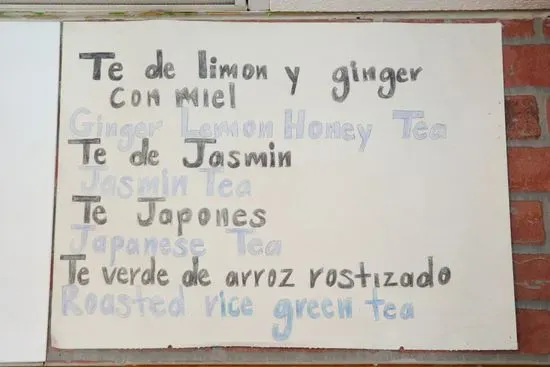 Te de limon y ginger
con miel
Ginger Lemon Honey Tea
Te de Jasmin
Jasmin Tea
Te Japones
Japanese Tea
Te verde de arroz rostizado
Roasted rice green tea